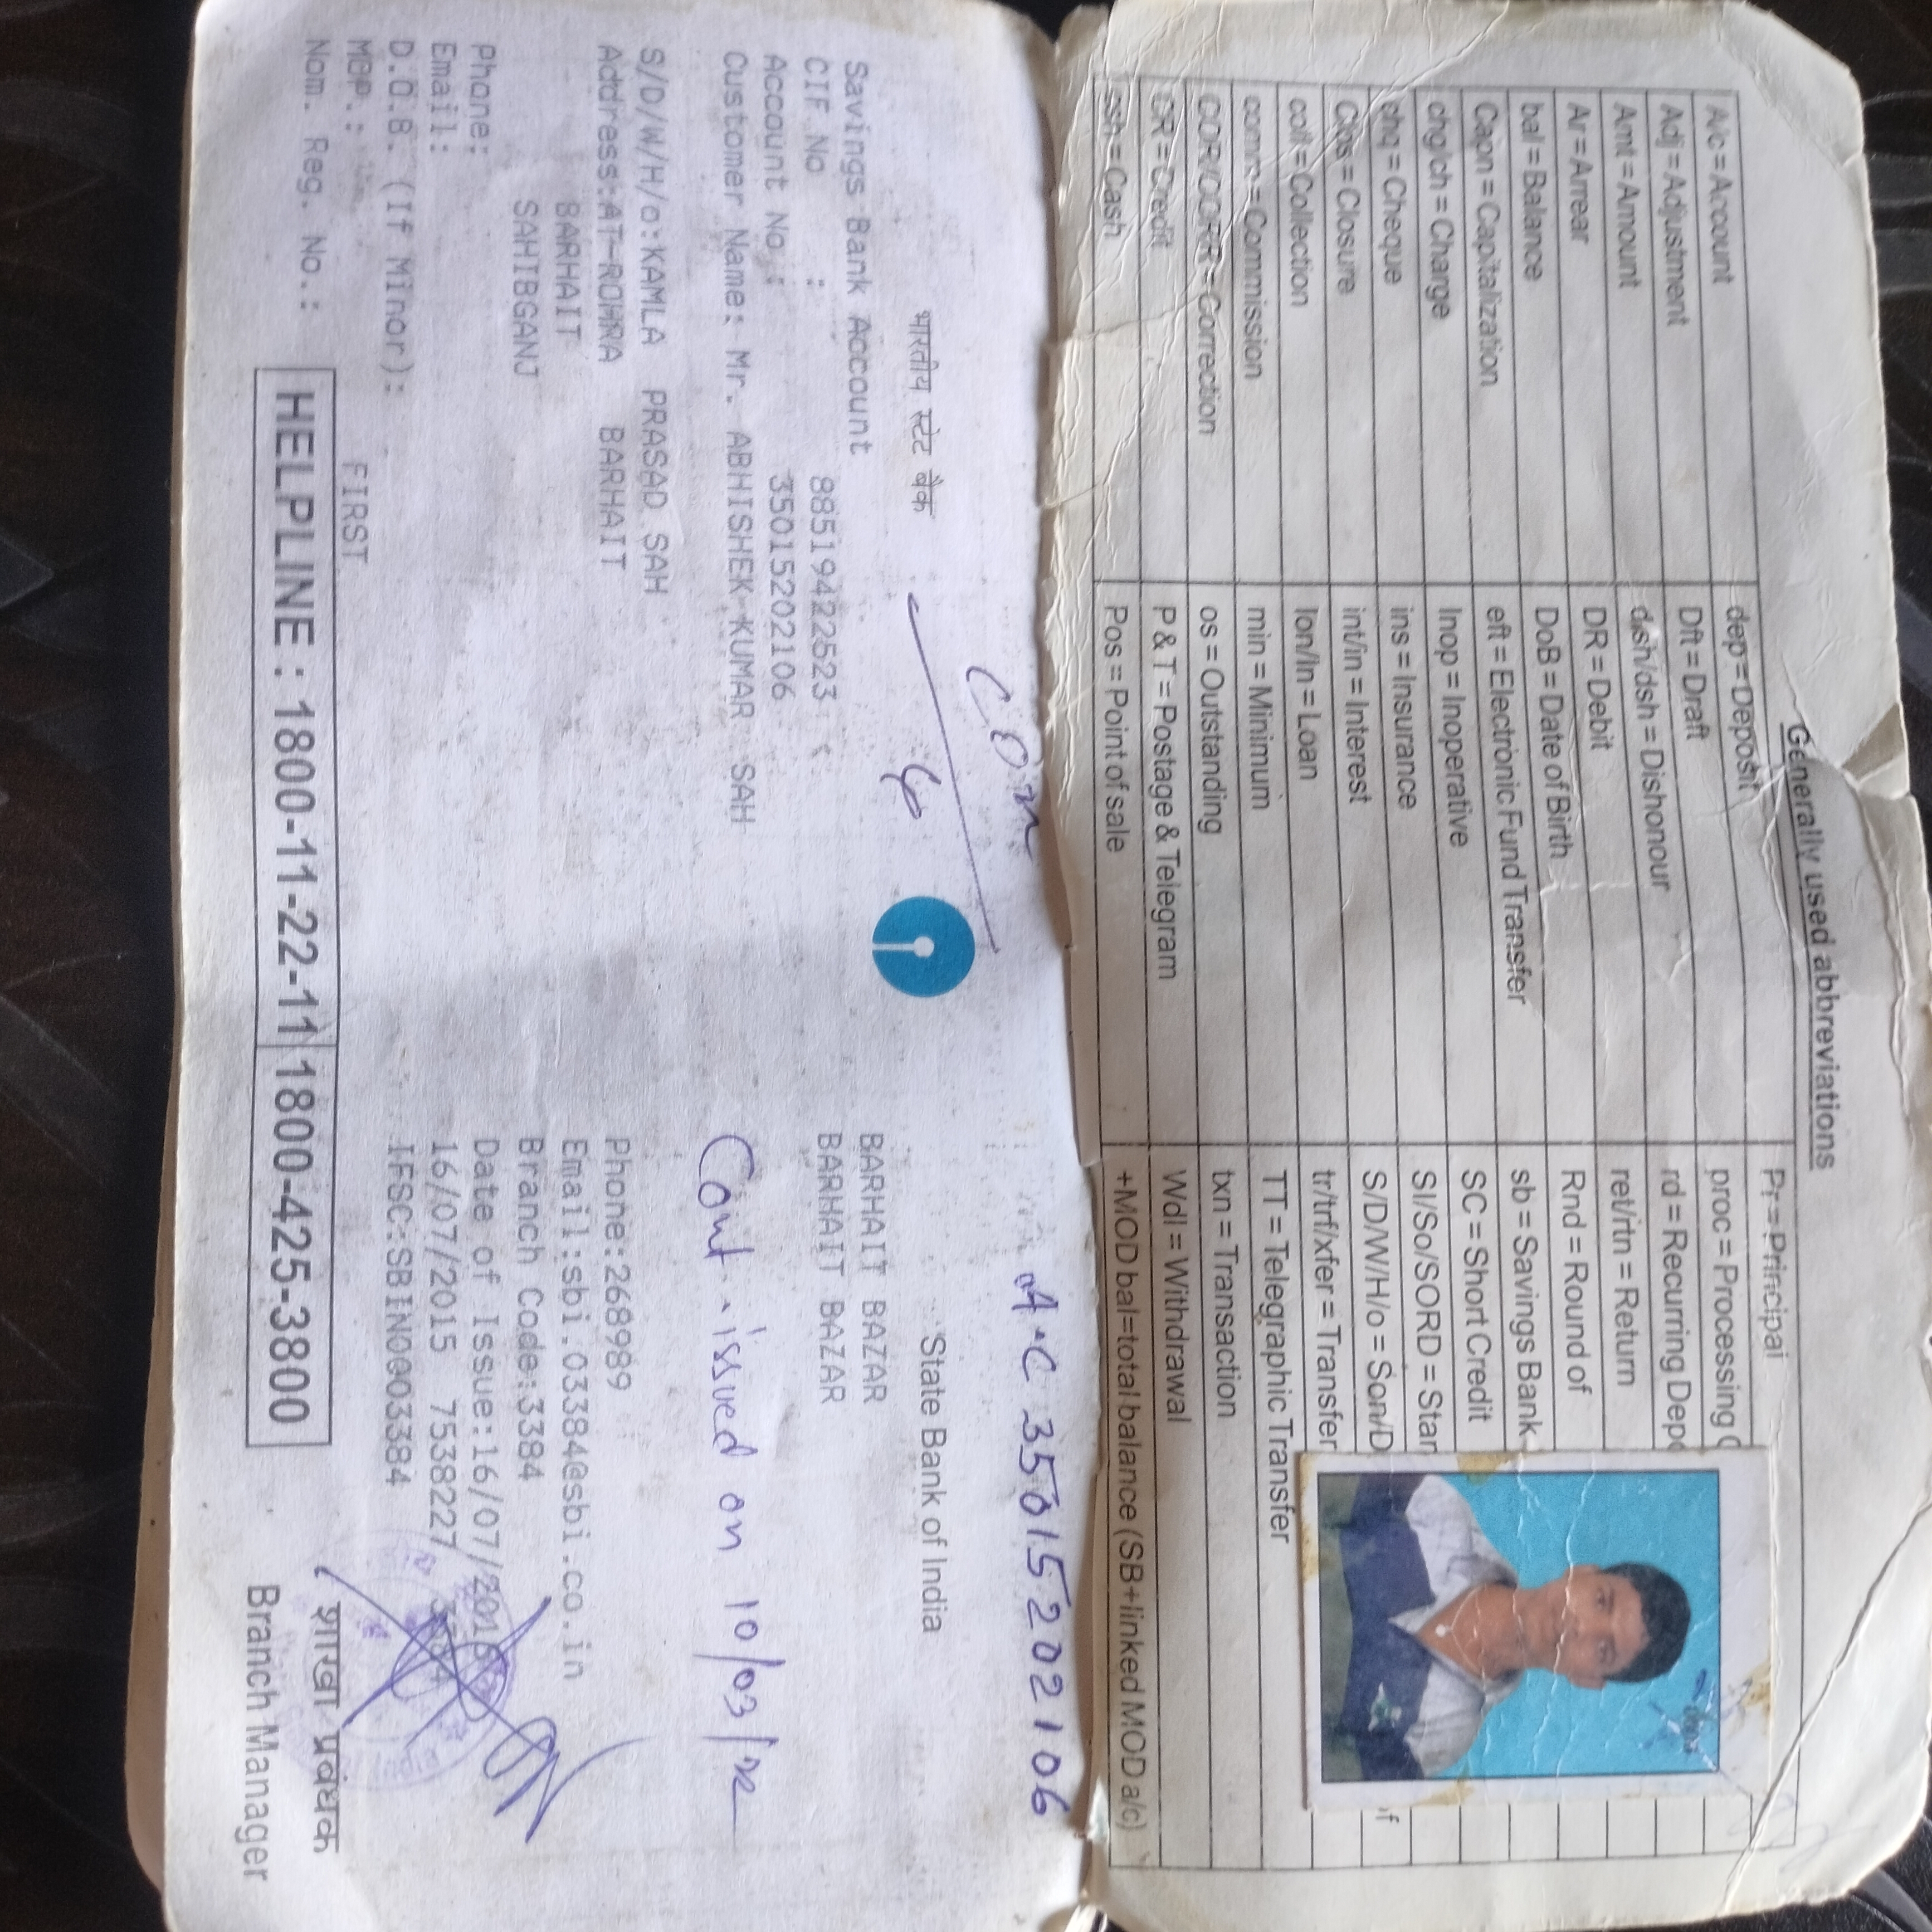 Generally used abbreviations
A/c = Account
dep = Deposit
Pr = Principal
Adj = Adjustment
Dft = Draft
proc = Processing
Amt = Amount
dish/dsh = Dishonour
rd = Recurring
Ar = Arrear
DR = Debit
ret/rtn = Return
bal = Balance
DoB = Date of Birth
Rnd = Round of
Capn = Capitalization
eft = Electronic Fund Transfer
sb = Savings Bank
chg/ch = Charge
Inop = Inoperative
SC = Short Credit
chq = Cheque
ins = Insurance
SI/So/SORD =
Clos = Closure
int/in = Interest
S/D/W/H/o = Son/D
coll = Collection
lon/ln = Loan
tr/trf/xfer = Transfer
comm = Commission
min = Minimum
TT = Telegraphic Transfer
COR/CORR = Correction
os = Outstanding
txn = Transaction
CR = Credit
P & T = Postage & Telegram
Wdl = Withdrawal
csh = Cash
Pos = Point of sale
+MOD bal=total balance (SB+linked MOD a/c)
A.C 35015202106
भारतीय स्टेट बैंक
State Bank of India
Savings Bank Account
BARHAIT BAZAR
CIF No : 88519422623
BARHAIT BAZAR
Account No.: 35015202106
Customer Name: Mr. ABHISHEK KUMAR SAH
Cont. issued on 10/03/22
S/D/W/H/o:KAMLA PRASAD SAH
Address:AT-ROMRA BARHAIT
Phone:268989
BARHAIT
Email:sbi.03384@sbi.co.in
SAHIBGANJ
Branch Code:3384
Phone:
Date of Issue:16/07/2015
Email:
16/07/2015 7538227 3384
D.O.B. (If Minor):
IFSC:SBIN0003384
MOP.:
FIRST
Nom. Reg. No.:
HELPLINE : 1800-11-22-11 1800-425-3800
शाखा प्रबंधक
Branch Manager